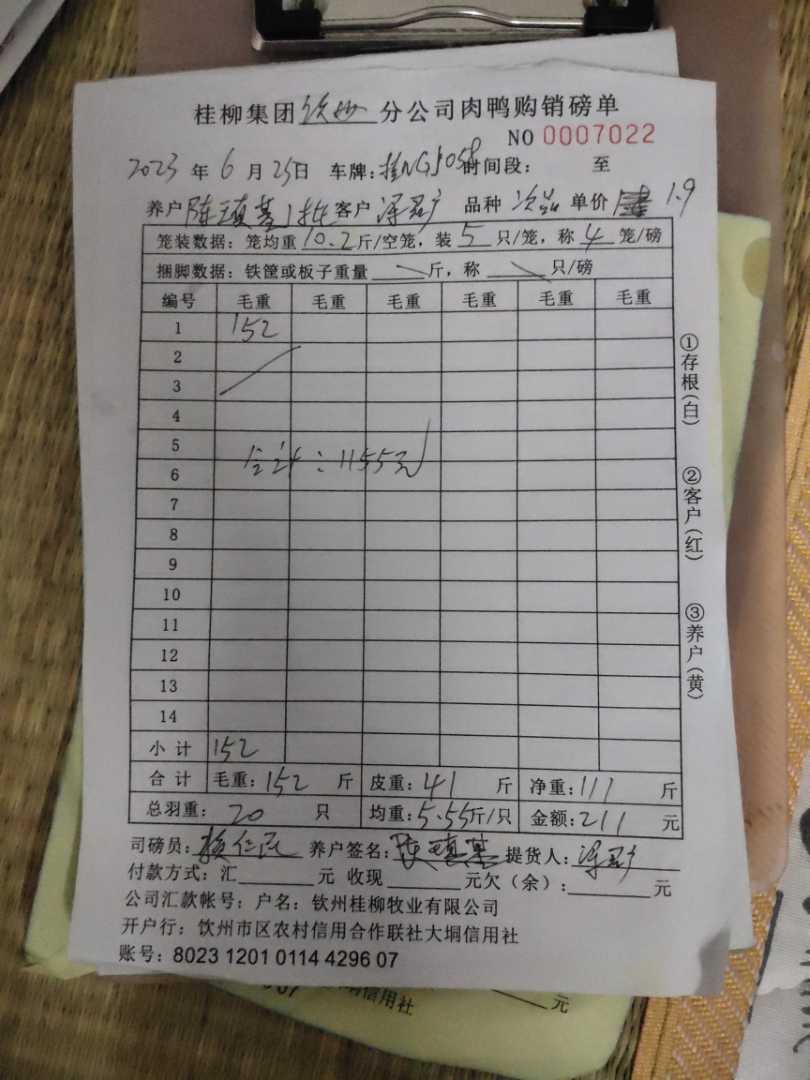 桂柳集团钦州分公司肉鸭购销磅单
NO 0007022
2023年6月25日 车牌:桂NG5058 时间段: 至
养户陈瑱基1批 客户 品种次品 单价 1.9
笼装数据：笼均重10.2斤/空笼，装5只/笼，称4笼/磅
捆脚数据：铁筐或板子重量 斤，称 只/磅
编号 毛重 毛重 毛重 毛重 毛重 毛重
1 152
2
3
4
5
合计：1155元
6
7
8
9
10
11
12
13
14
小计 152
合计 毛重：152斤 皮重：41斤 净重：111斤
总羽重：20只 均重：5.55斤/只 金额：211元
司磅员： 养户签名：陈瑱基 提货人：
付款方式：汇 元 收现 元欠（余）： 元
公司汇款帐号：户名：钦州桂柳牧业有限公司
开户行：钦州市区农村信用合作联社大垌信用社
账号：8023 1201 0114 4296 07
①存根(白)
②客户(红)
③养户(黄)
信用社
元